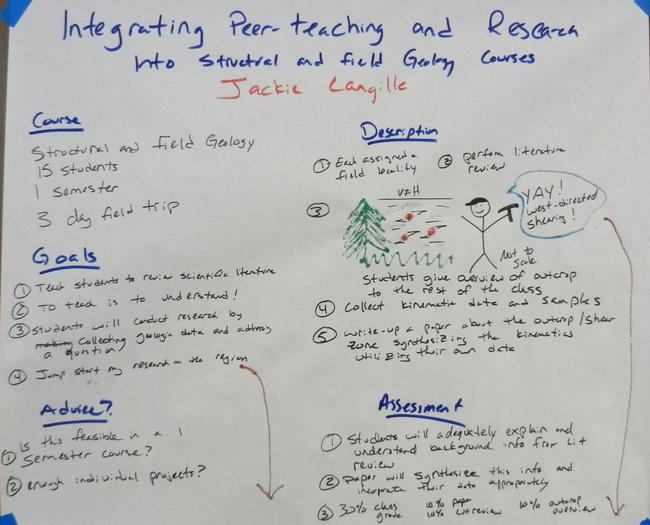 Integrating Peer-teaching and Research
Into Structural and field Geology Courses
Jackie Langille
Course
Structural and field Geology
15 students
1 semester
3 day field trip
Goals
① Teach students to review scientific literature
② To teach is to understand!
③ Students will conduct research by
collecting geologic data and address
a question
④ Jump start my research in the region
Advice?
① Is this feasible in a 1
semester course?
② enough individual projects?
Description
① Each assigned a
field locality
② perform literature
review
③
V=H
YAY!
west-directed
shearing!
Not to
scale
Students give overview of outcrop
to the rest of the class
④ Collect kinematic data and samples
⑤ write-up a paper about the outcrop/shear
zone synthesizing the kinematics
utilizing their own data
Assessment
① Students will adequately explain and
understand background info from lit
review
② paper will synthesize this info and
incorporate their data appropriately
③ 30% class
grade
10% paper
10% Lit review
10% outcrop
overview